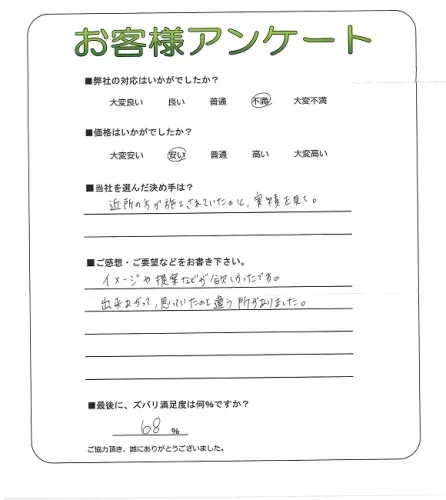 お客様アンケート
■弊社の対応はいかがでしたか？
大変良い 良い 普通 不満 大変不満
■価格はいかがでしたか？
大変安い 安い 普通 高い 大変高い
■当社を選んだ決め手は？
近所の方が施工されていたのと、実績を見て。
■ご感想・ご要望などをお書き下さい。
イメージや提案などが欲しかったです。
出来あがって、思っていたのと違う所がありました。
■最後に、ズバリ満足度は何％ですか？
68 ％
ご協力頂き、誠にありがとうございました。